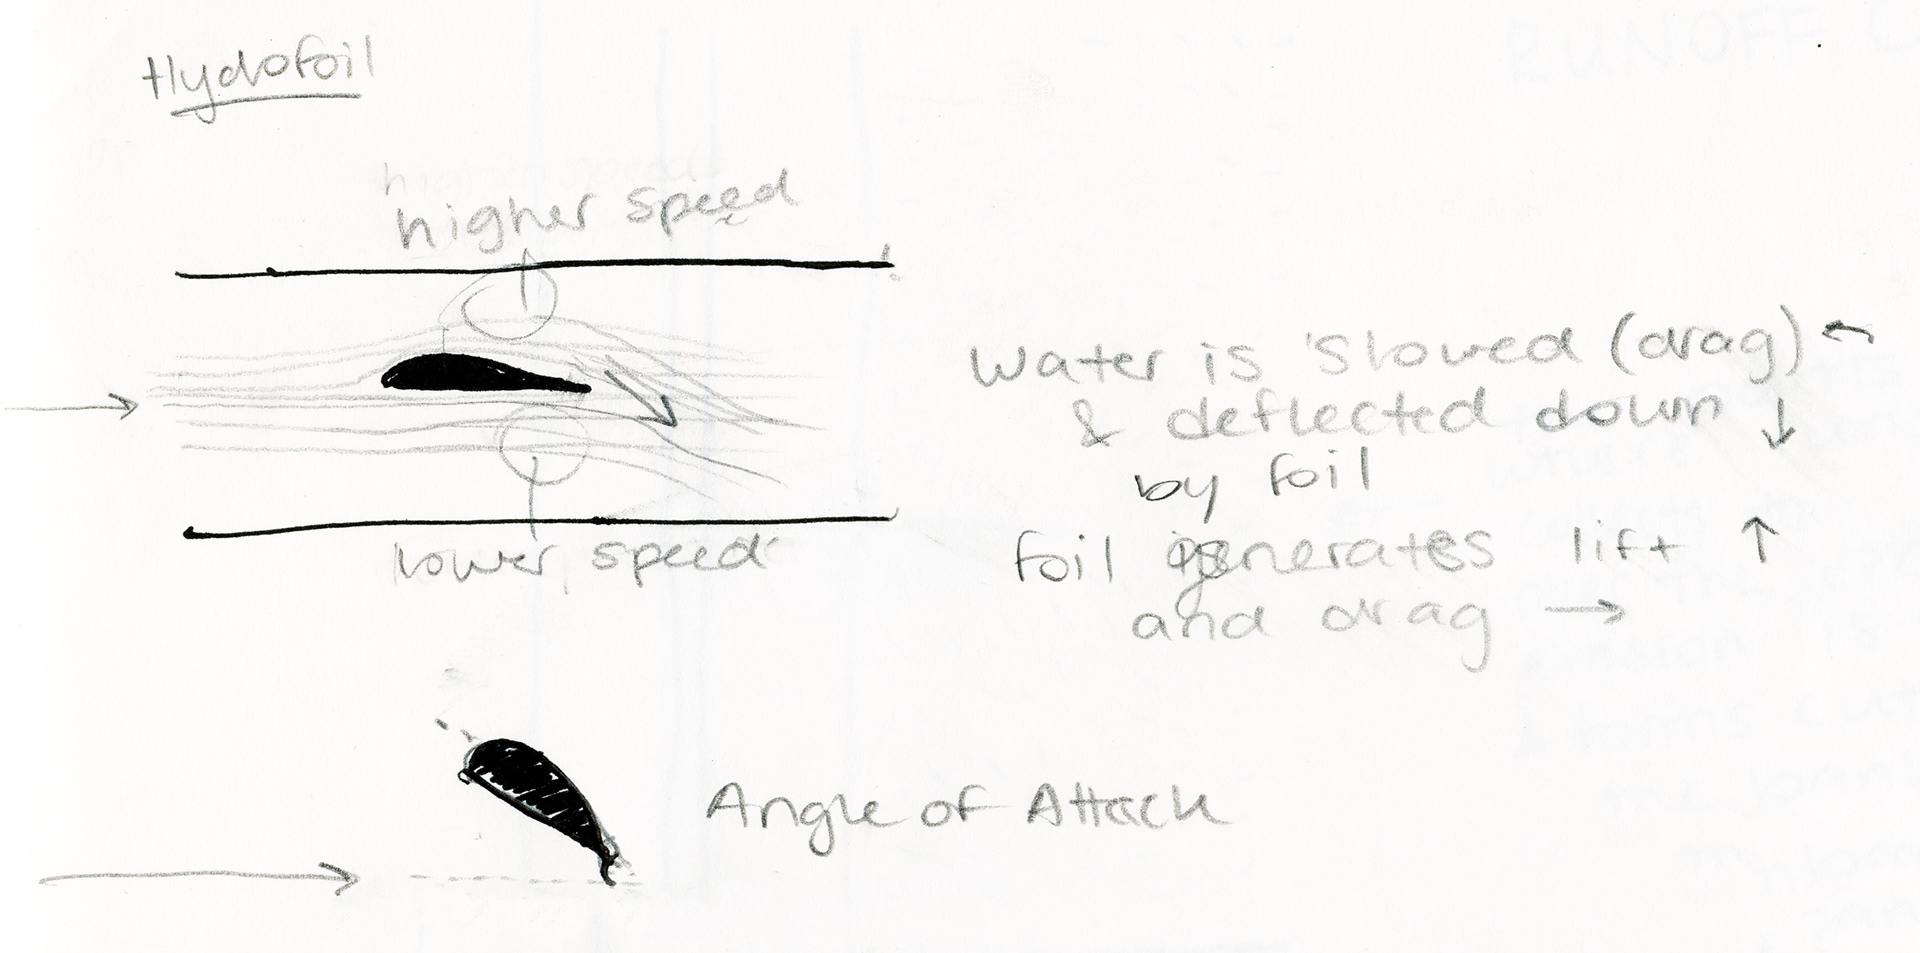 Hydofoil
higher speed
Water is slowed (drag) ←
& deflected down ↓
by foil
lower speed
foil generates lift ↑
and drag →
Angle of Attack
RUNOFF